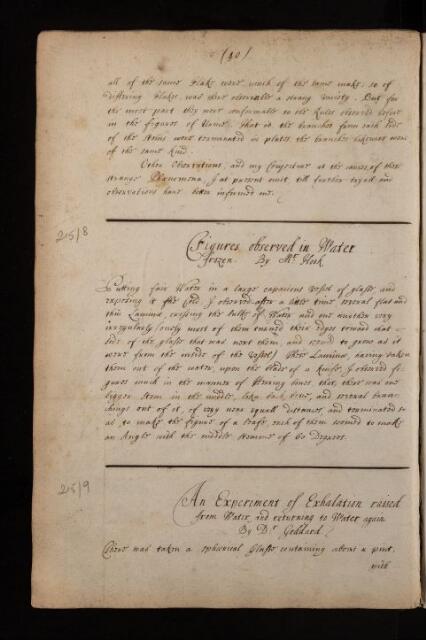 (40)
all of the same Flake were much of the same make, so of
differing Flakes was there observable a strang variety. But for
the most part they were conformable to the Rules observed before
in the figures of Vrine, that is, the branches from each side
of the Stems were terminated in plates the branches likewise were
of the same kind.
Other Observations, and my Conjecture at the causes of these
strange Phænomena, I at present omit, till further tryall and
observations have better informed me.
215/8
Figures observed in Water
frozen. By Mr. Hook
Putting fair Water in a large capacious Vessel of glass, and
exposing it to the Cold, I observed after a little time several flat and
thin Laminæ, crossing the bulk of Water and one another very
irregularly (only most of them turned their edges toward that
side of the glass that was next them, and seem'd to grow as it
were from the inside of the Vessel) These Laminæ, having taken
them out of the water, upon the blade of a Knife, I observed fi-
gures much in the manner of Herring bones that, there was one
bigger stem in the middle, like a back bone, and several bran-
chings out of it, of very near equall distances, and terminated so
as to make the figure of a leafe, each of them seemed to make
an Angle with the middle stemme of 60 Degrees.
215/9
An Experiment of Exhalation raised
from Water and returning to Water again
By Dr Goddard
There was taken a spherical Glasse containing about a pint,
with